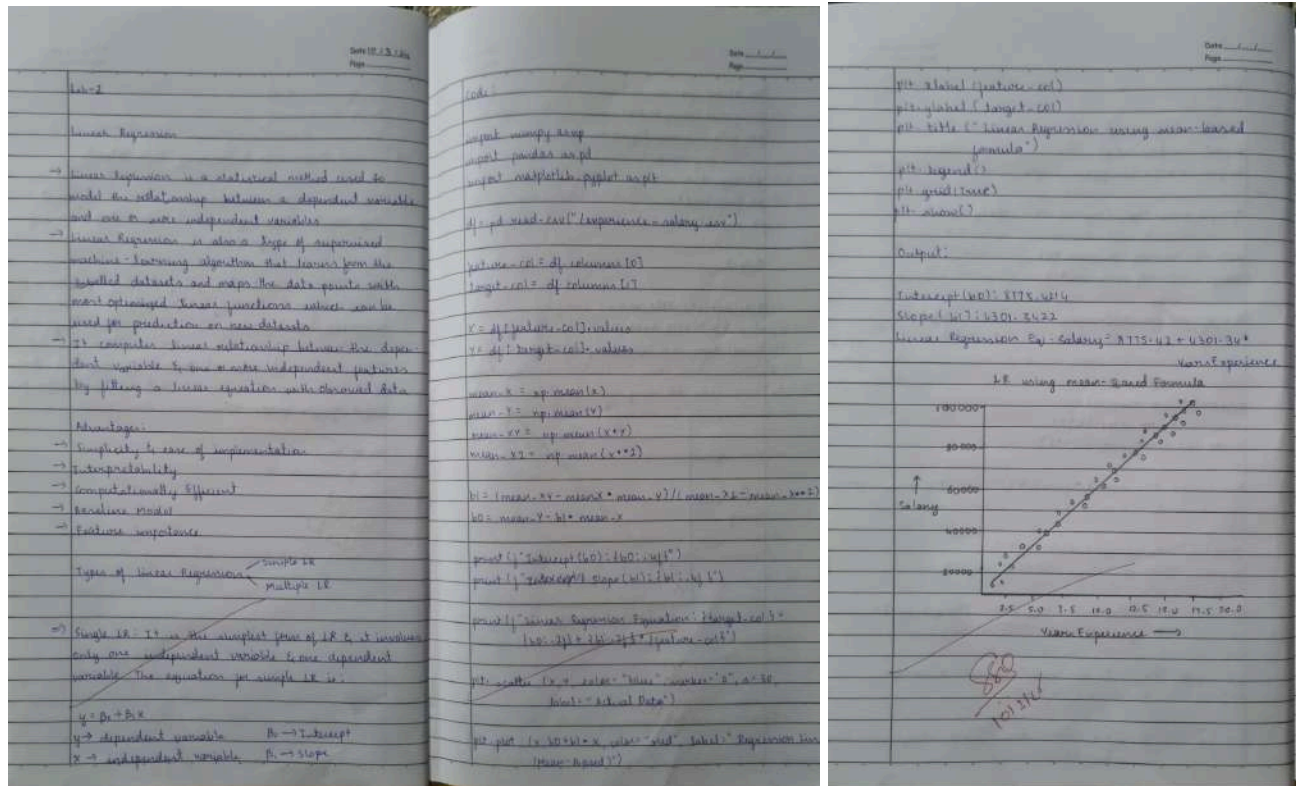 Date
Page
Linear Regression
→ Linear Regression is a statistical method used to
model the relationship between a dependent variable
and one or more independent variables
→ Linear Regression is also a type of supervised
machine-learning algorithm that learns from the
labelled datasets and maps the data points with
most optimized linear functions which can be
used for prediction on new datasets
→ It computes linear relationship between the depen-
dent variable & one or more independent features
by fitting a linear equation with observed data
Advantages:
→ Simplicity & ease of implementation
→ Interpretability
→ Computationally Efficient
→ Baseline Model
→ Feature importance
Types of Linear Regression
Simple LR
Multiple LR
LR: It is the simplest form of LR & it involves
only one independent variable & one dependent
variable. The equation for simple LR is:
y = β₀ + β₁x
y → dependent variable β₀ → Intercept
x → independent variable β₁ → Slope
Date
Page
Code:
import numpy as np
import pandas as pd
import matplotlib.pyplot as plt
feature_col = df.columns[0]
target_col = df.columns[1]
X = df[feature_col].values
Y = df[target_col].values
mean_X = np.mean(X)
mean_Y = np.mean(Y)
mean_XY = np.mean(X*Y)
mean_X2 = np.mean(X**2)
b0 = mean_Y - b1 * mean_X
label = "Actual Data")
Date
Page
plt.xlabel(feature_col)
plt.ylabel(target_col)
plt.title("Linear Regression using mean-based
formula")
plt.legend()
plt.grid(True)
plt.show()
Output:
Intercept (b0): 8775.4214
Slope (b1): 4301.3422
Linear Regression Eq: Salary = 8775.42 + 4301.34*
Years Experience
LR using mean-Based Formula
100000
80000
60000
40000
20000
Salary
2.5 5.0 7.5 10.0 12.5 17.5 20.0
Years Experience →